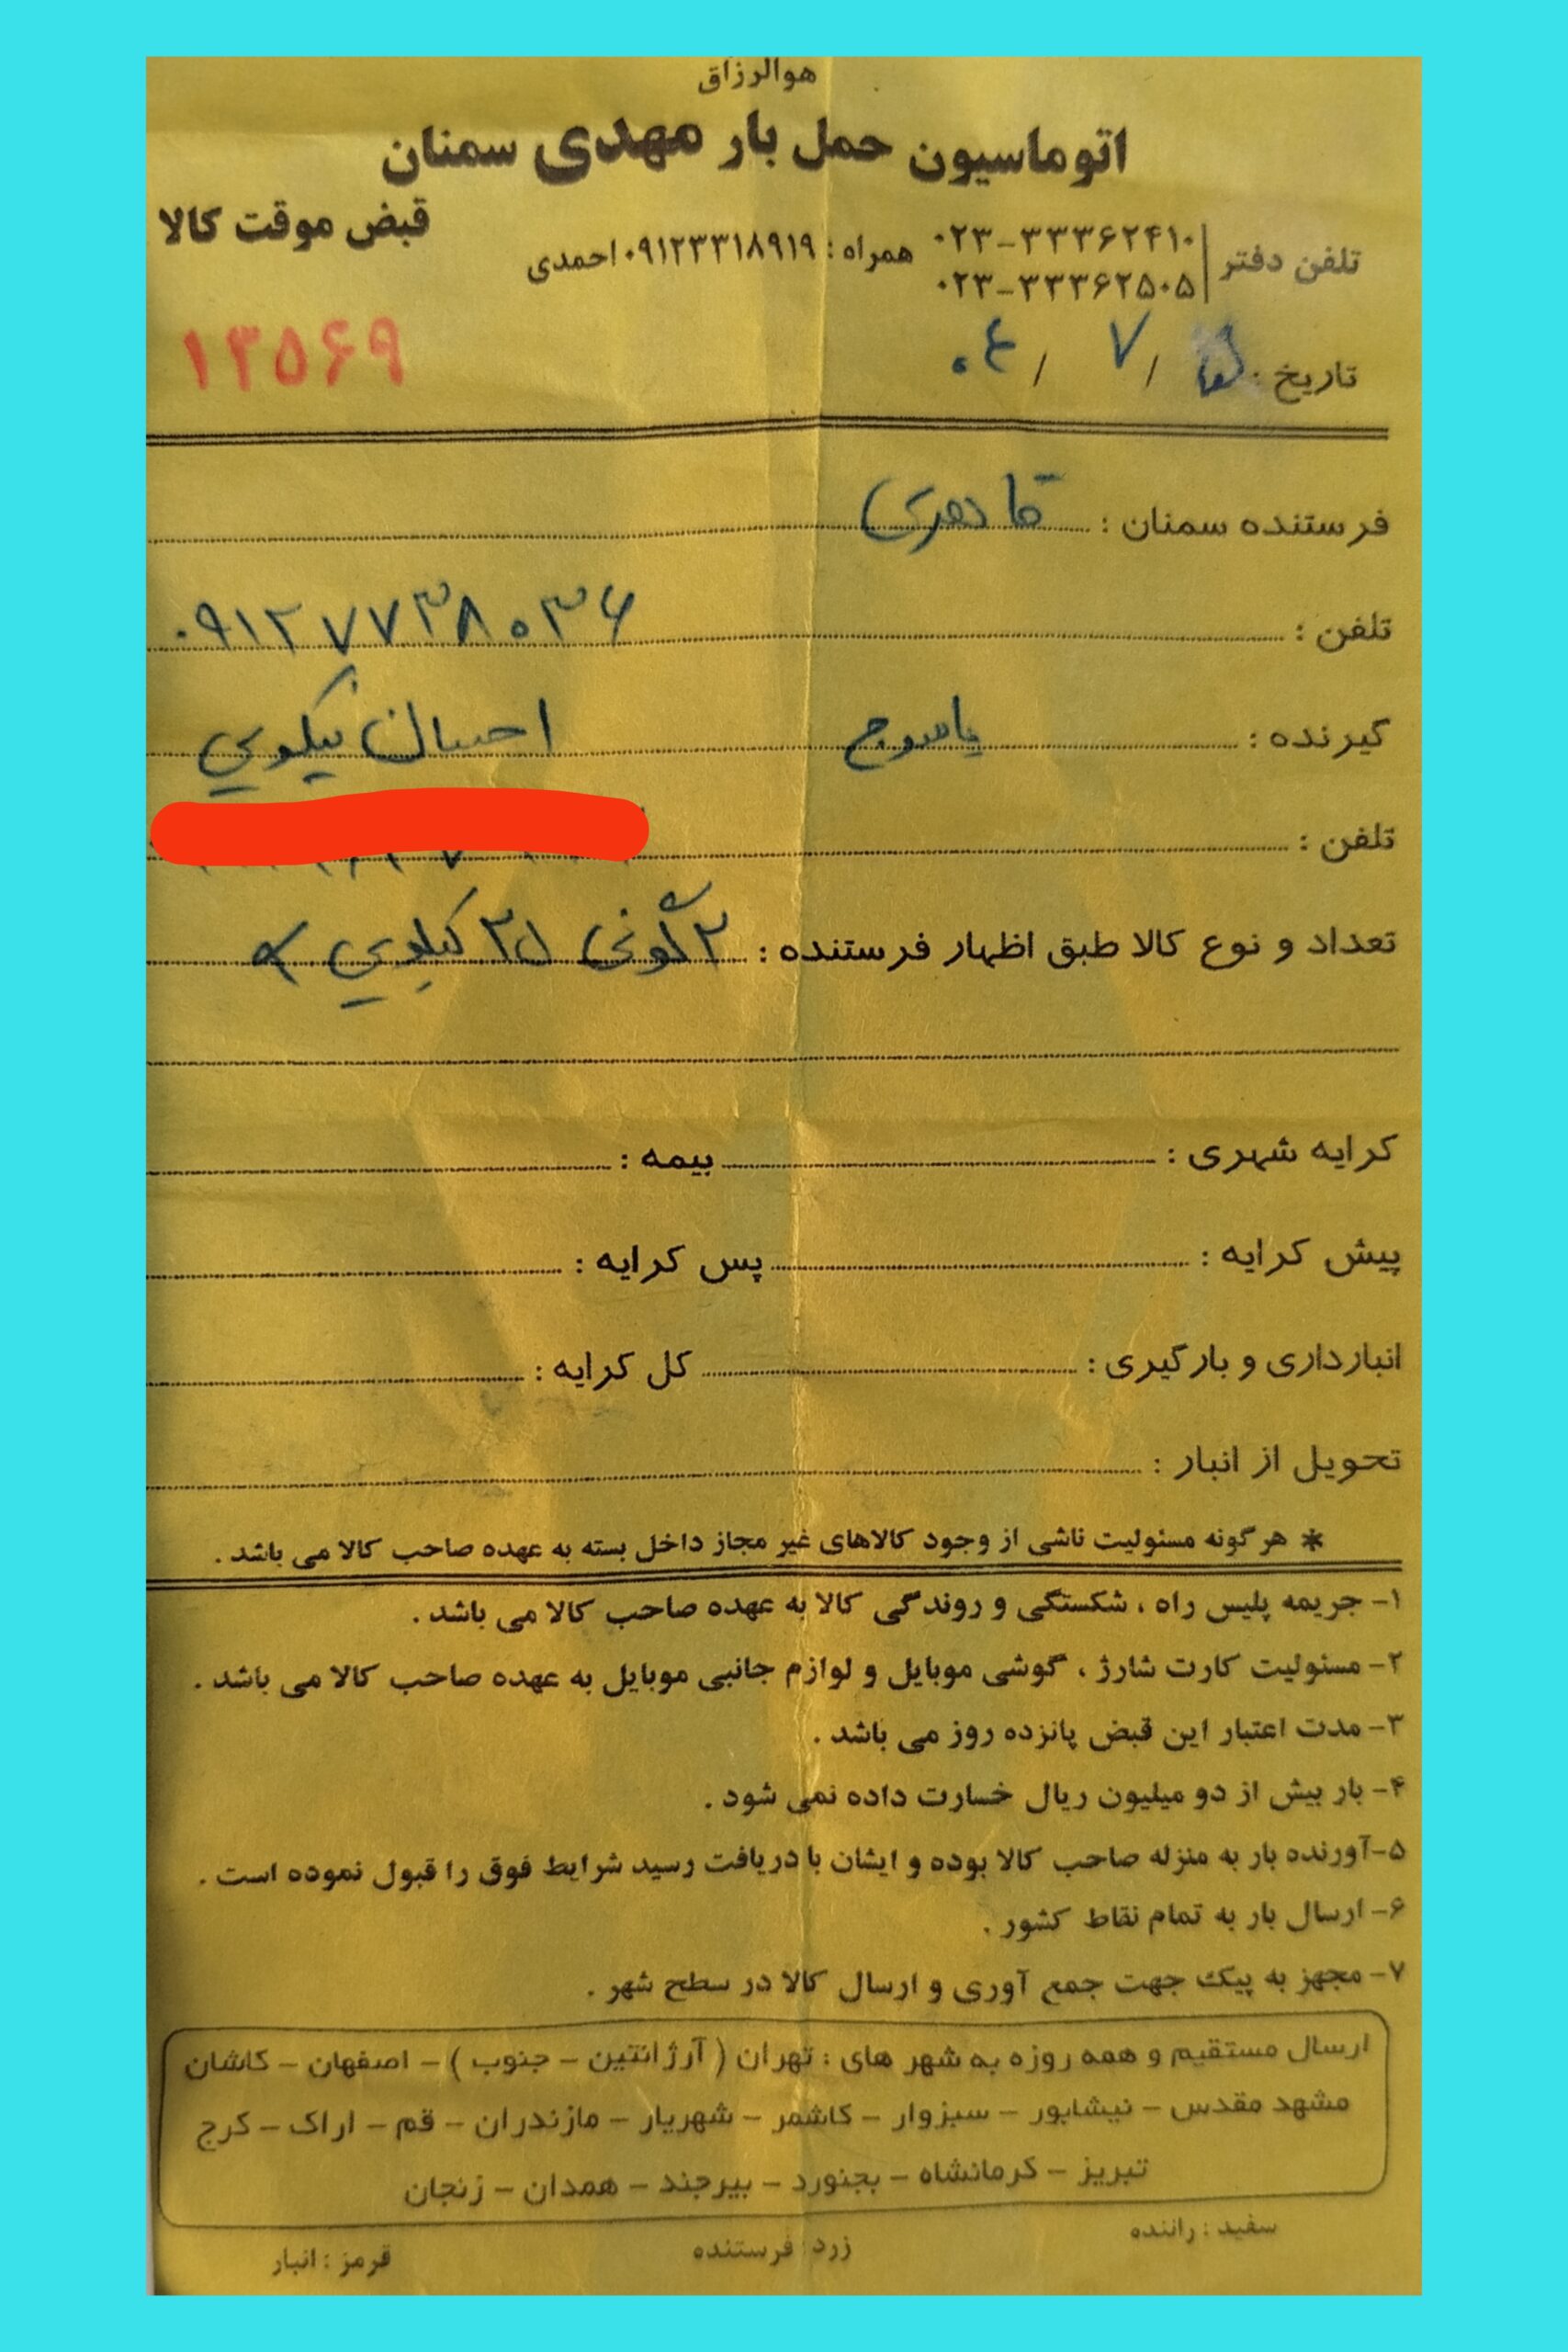 هوالرزاق
اتوماسیون حمل بار مهدی سمنان
قبض موقت کالا
تلفن دفتر ۰۲۳-۳۳۳۶۲۴۱۰ همراه : ۰۹۱۲۳۳۱۸۹۱۹ احمدی
۰۲۳-۳۳۳۶۲۵۰۵
تاریخ : / ۷ / ۰۴
۱۳۵۶۹
فرستنده سمنان :
تلفن : ۰۹۱۲۷۷۳۸۰۳۶
گیرنده : یاسوج احسان نیکویی
تلفن :
تعداد و نوع کالا طبق اظهار فرستنده : ۲ گونی کیلویی
کرایه شهری : بیمه :
پیش کرایه : پس کرایه :
انبارداری و بارگیری : کل کرایه :
تحویل از انبار :
* هر گونه مسئولیت ناشی از وجود کالاهای غیر مجاز داخل بسته به عهده صاحب کالا می باشد .
۱- جریمه پلیس راه ، شکستگی و روندگی کالا به عهده صاحب کالا می باشد .
۲- مسئولیت کارت شارژ ، گوشی موبایل و لوازم جانبی موبایل به عهده صاحب کالا می باشد .
۳- مدت اعتبار این قبض پانزده روز می باشد .
۴- بار بیش از دو میلیون ریال خسارت داده نمی شود .
۵-آورنده بار به منزله صاحب کالا بوده و ایشان با دریافت رسید شرایط فوق را قبول نموده است .
۶- ارسال بار به تمام نقاط کشور .
۷- مجهز به پیک جهت جمع آوری و ارسال کالا در سطح شهر .
ارسال مستقیم و همه روزه به شهر های : تهران ( آرژانتین - جنوب ) - اصفهان - کاشان
مشهد مقدس - نیشابور - سبزوار - کاشمر - شهریار - مازندران - قم - اراک - کرج
تبریز - کرمانشاه - بجنورد - بیرجند - همدان - زنجان
سفید : راننده زرد : فرستنده قرمز : انبار